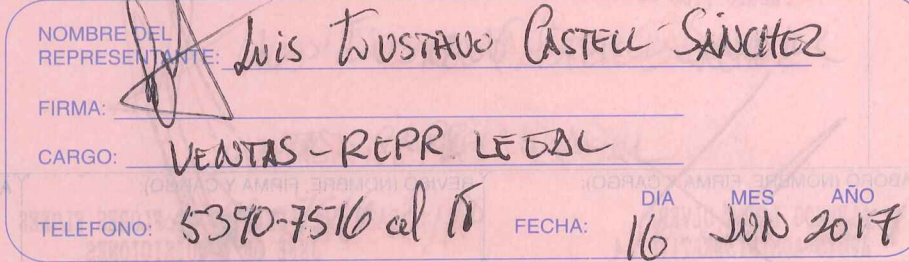 NOMBRE DEL
REPRESENTANTE: Luis GUSTAVO CASTELL SÁNCHEZ
FIRMA:
CARGO: VENTAS - REPR. LEGAL
TELEFONO: 5390-7516 al
FECHA: DIA MES AÑO
16 JUN 2017